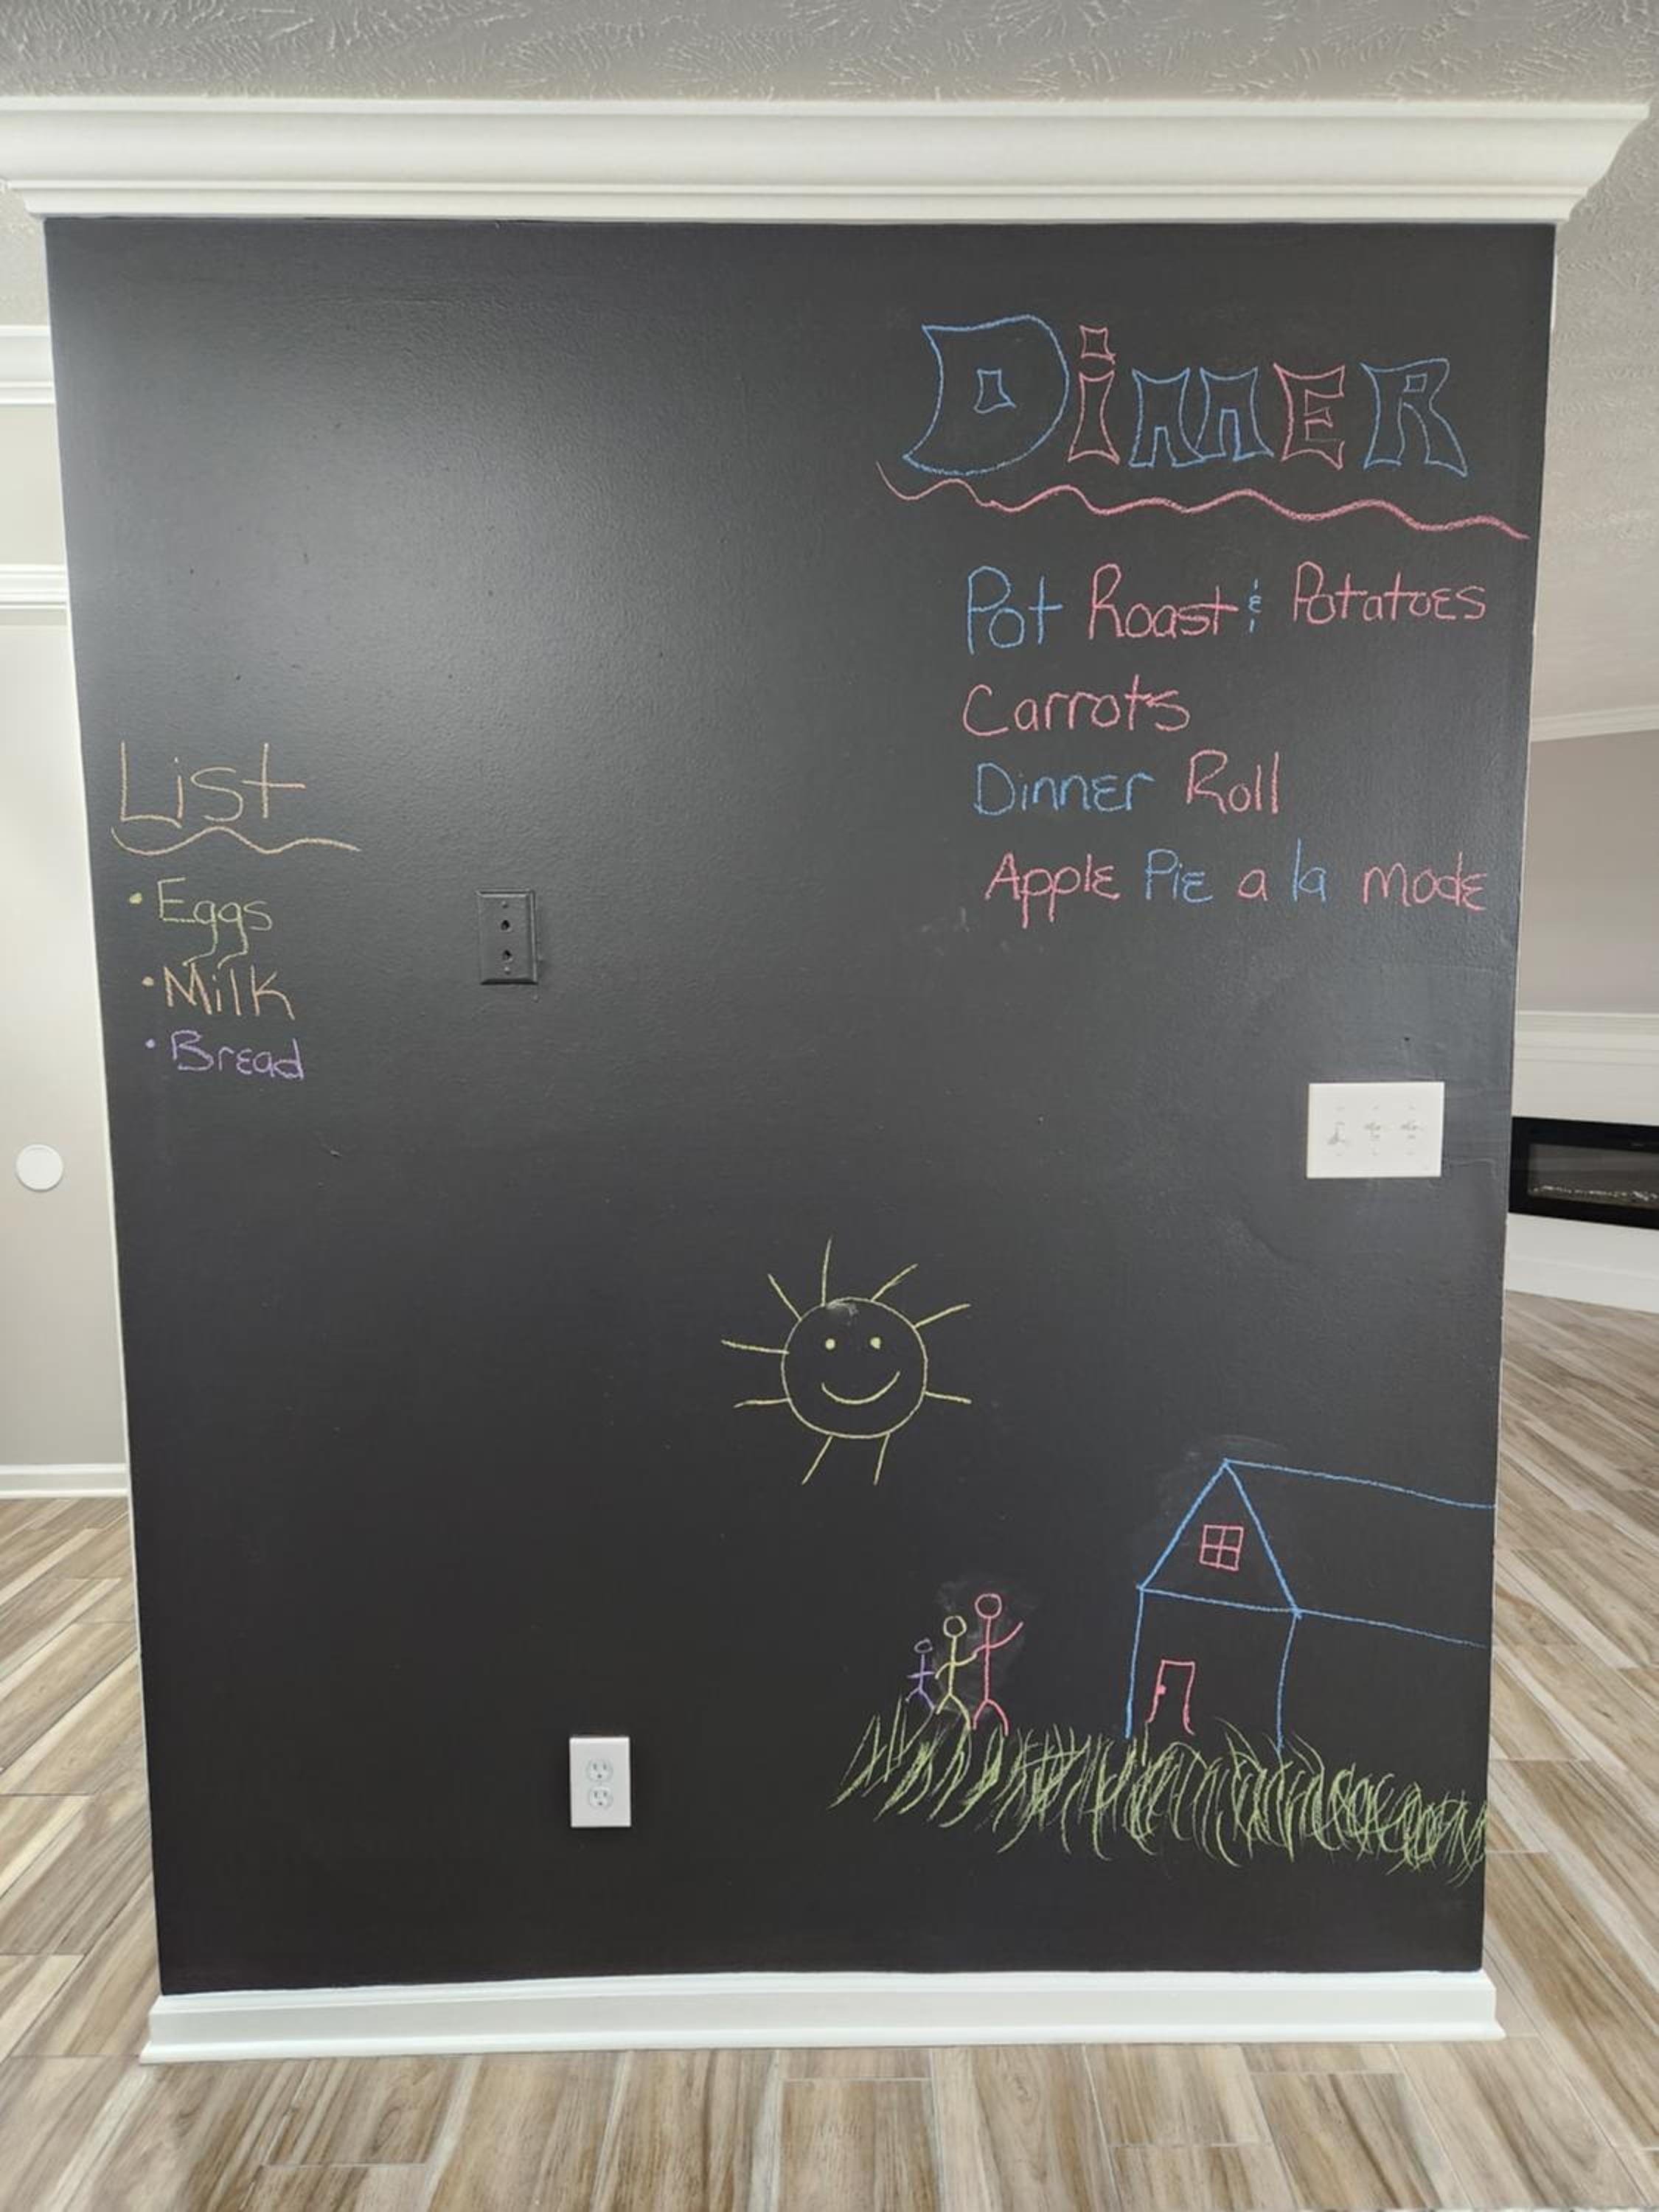 Dinner
Pot Roast & Potatoes
Carrots
Dinner Roll
Apple Pie a la mode
List
• Eggs
• Milk
• Bread